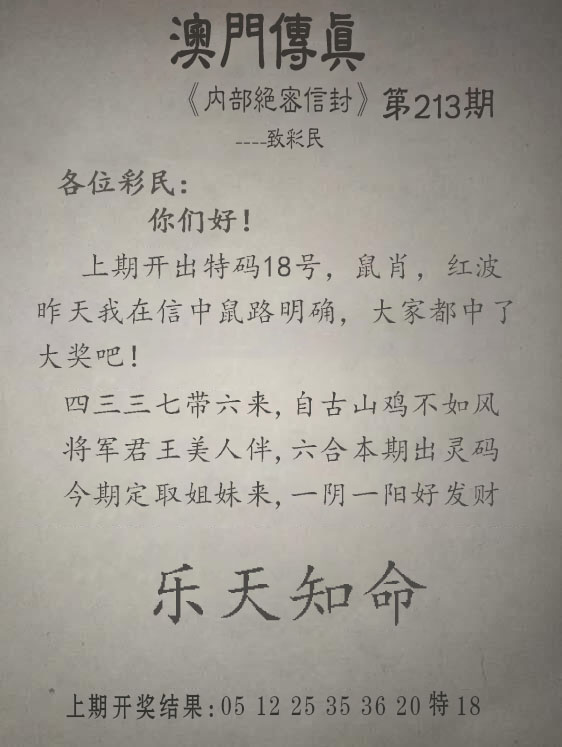 澳門傳眞
《内部絕密信封》第213期
----致彩民
各位彩民：
你们好！
上期开出特码18号，鼠肖，红波
昨天我在信中鼠路明确，大家都中了
大奖吧！
四三三七带六来,自古山鸡不如风
将军君王美人伴,六合本期出灵码
今期定取姐妹来,一阴一阳好发财
乐天知命
上期开奖结果:05 12 25 35 36 20 特 18